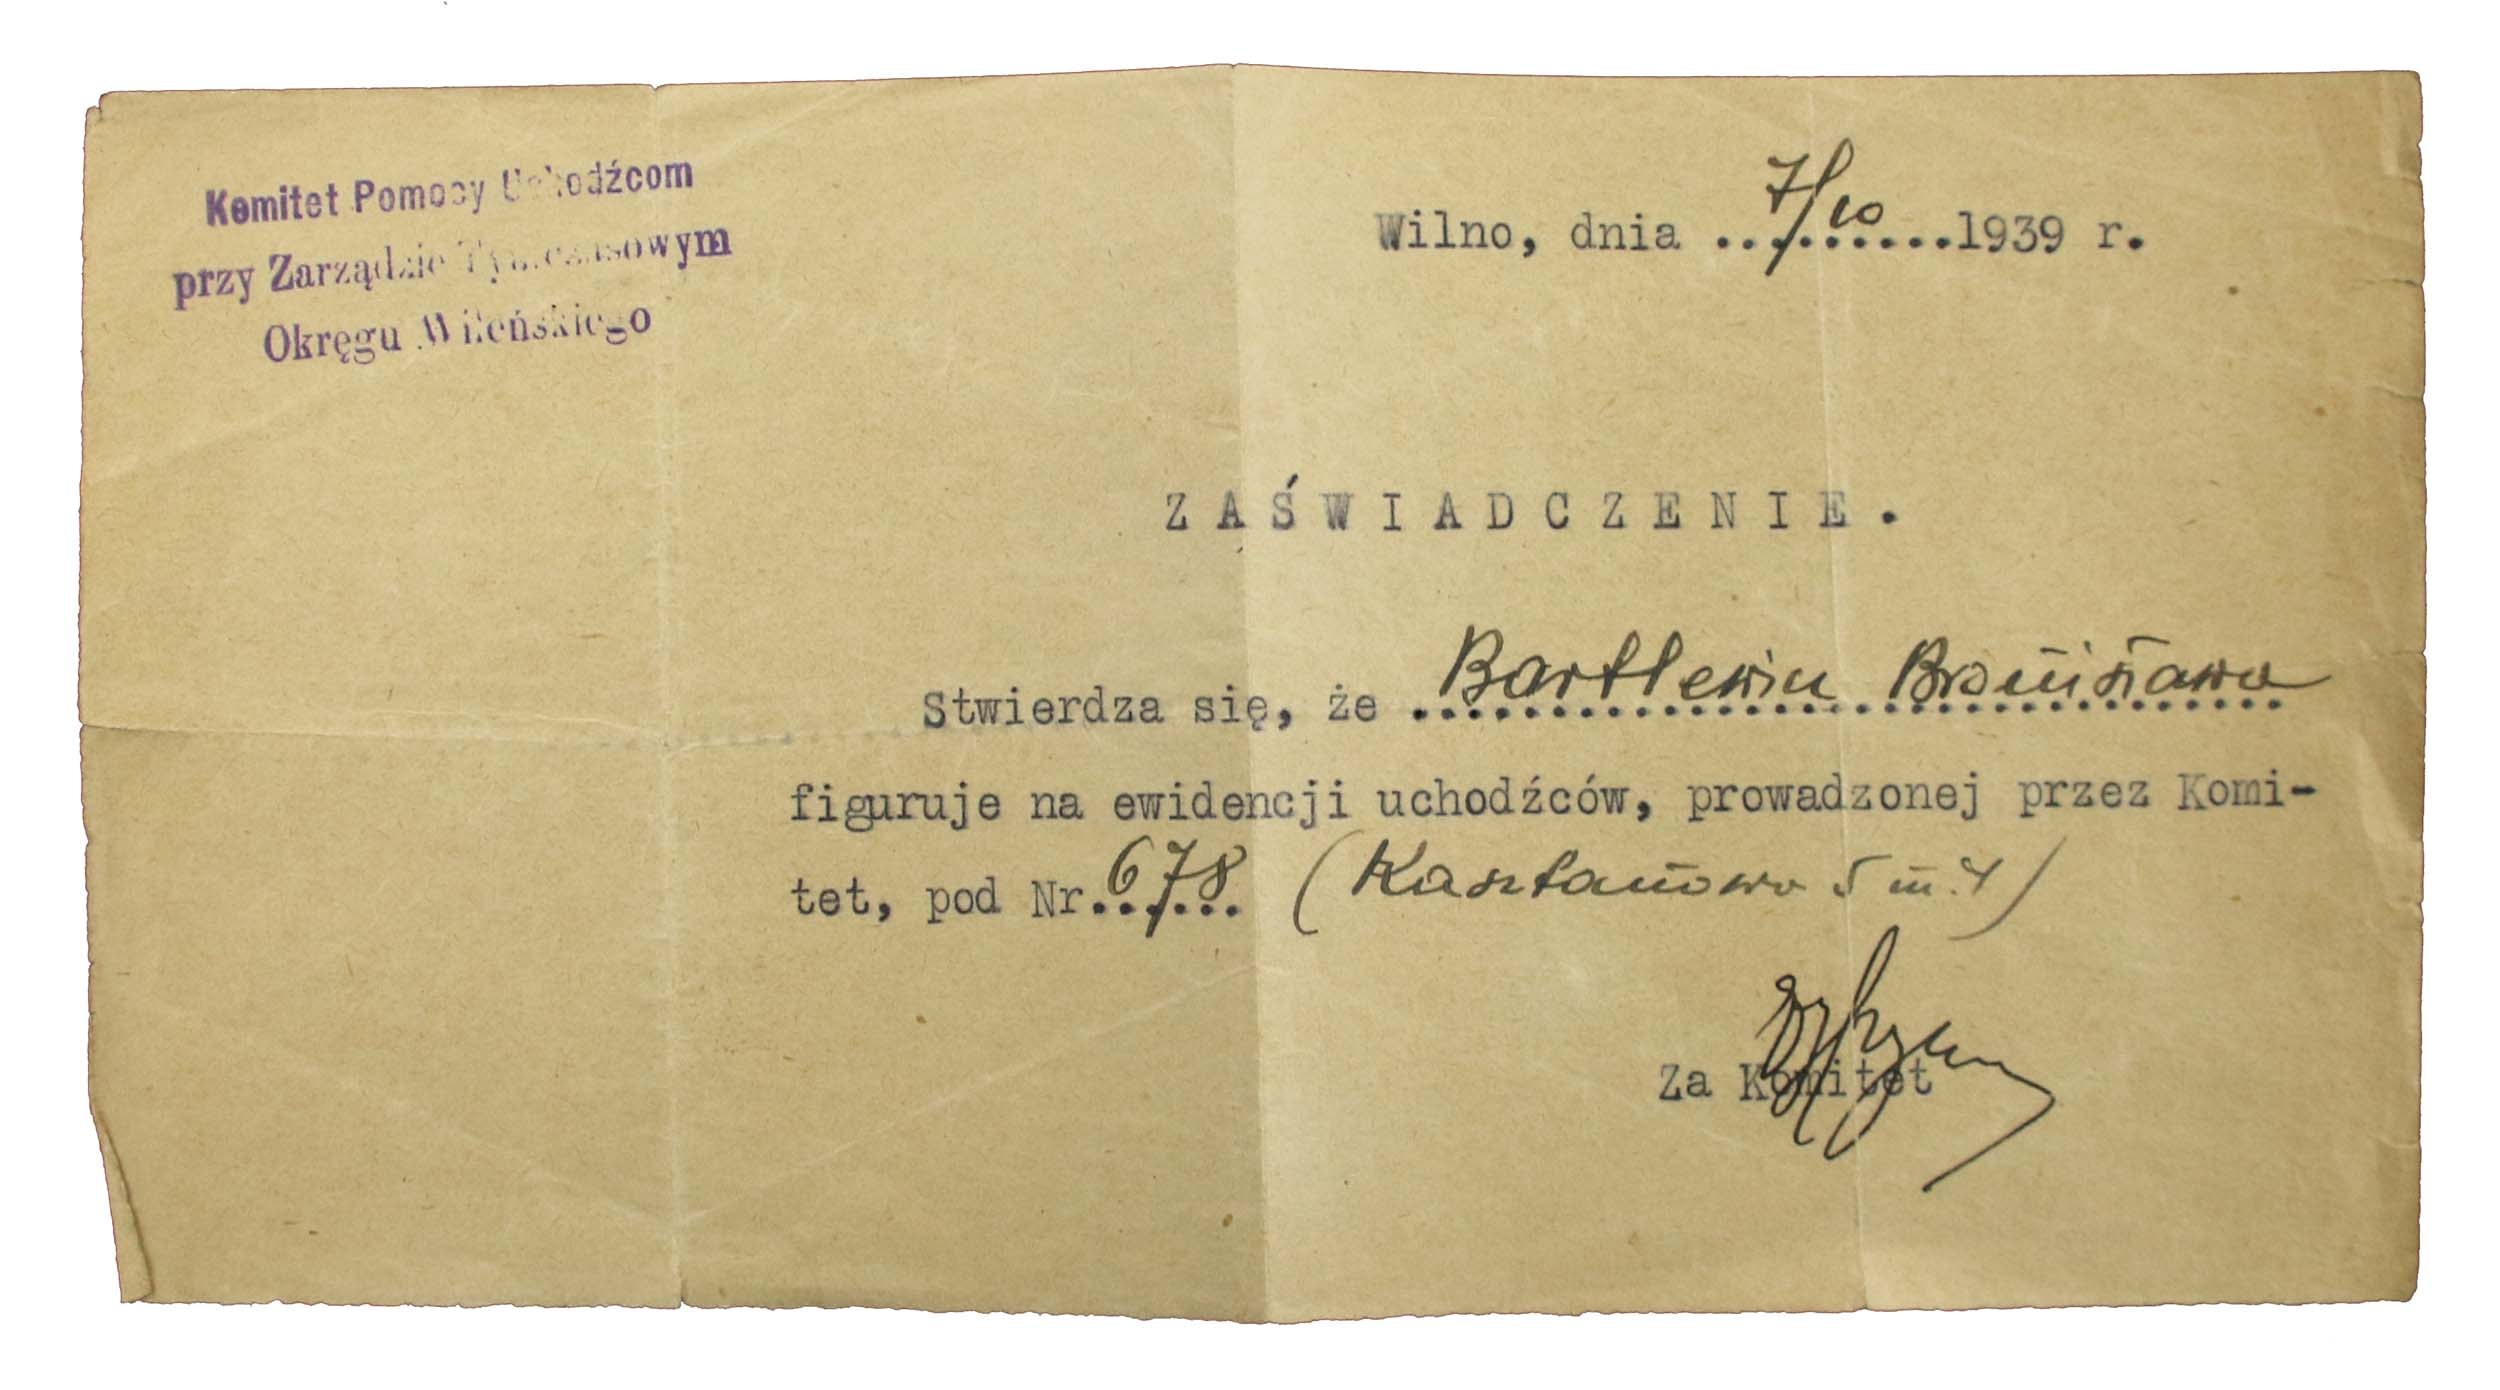 Komitet Pomocy Uchodźcom
przy Zarządzie Tymczasowym
Okręgu Wileńskiego
Wilno, dnia 7/10 1939 r.
ZAŚWIADCZENIE.
Stwierdza się, że Bronisława
figuruje na ewidencji uchodźców, prowadzonej przez Komi-
tet, pod Nr. 678 (Kasztanowa 5 m. 4)
Za Komitet